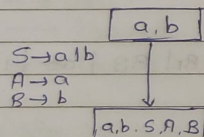 a, b
S → a1b
A → a
B → b
a, b. S, A, B